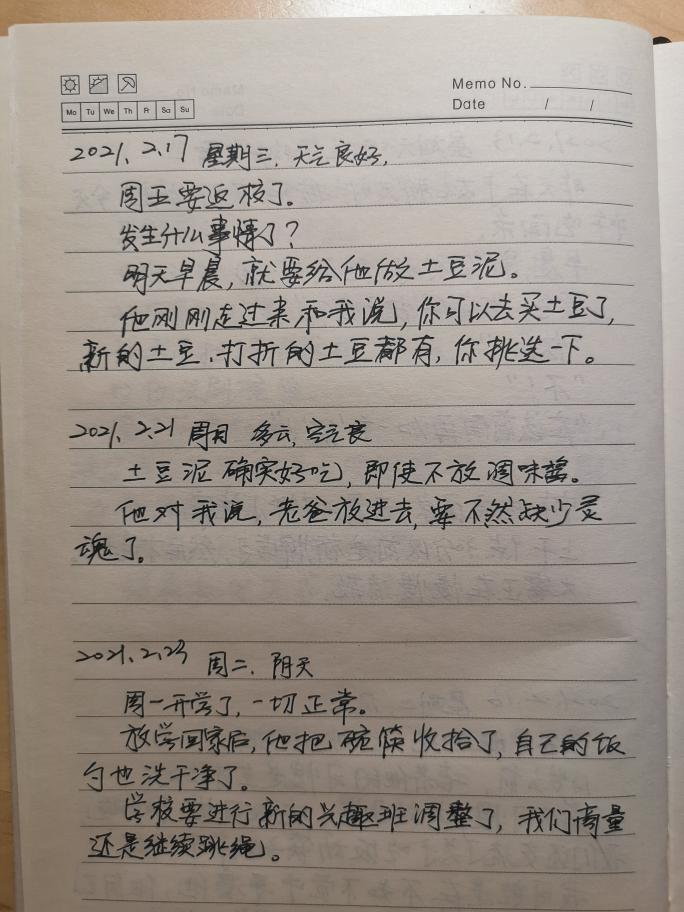 Memo No.
Mo Tu We Th Fr Sa Su
Date / /
2021.2.17 星期三. 天气良好.
周五要返校了。
发生什么事情了?
明天早晨, 就要给他做土豆泥。
他刚刚走过来和我说, 你可以去买土豆了,
新的土豆.打折的土豆都有, 你挑选一下。
2021.2.21 周日 多云, 空气良
土豆泥确实好吃, 即使不放调味酱。
他对我说, 老爸放进去, 要不然缺少灵
魂了。
2021.2.23 周二. 阴天
周一开学了, 一切正常。
放学回家后, 他把碗筷收拾了, 自己的饭
勺也洗干净了。
学校要进行新的兴趣班调整了, 我们商量
还是继续跳绳。